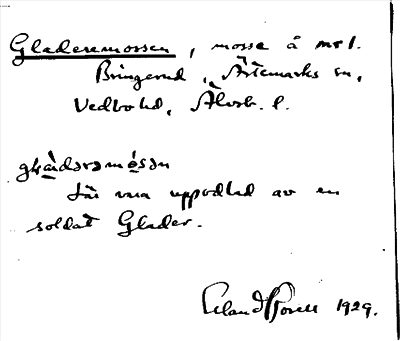 Gladeremossen, mosse å mrl.
Bringerud, Ärtemarks sn,
Vedbo hd, Älvsb. l.
glàdərəmósən
Lär vara uppodlad av en
soldat Glader.
Erland Hjorth 1929.